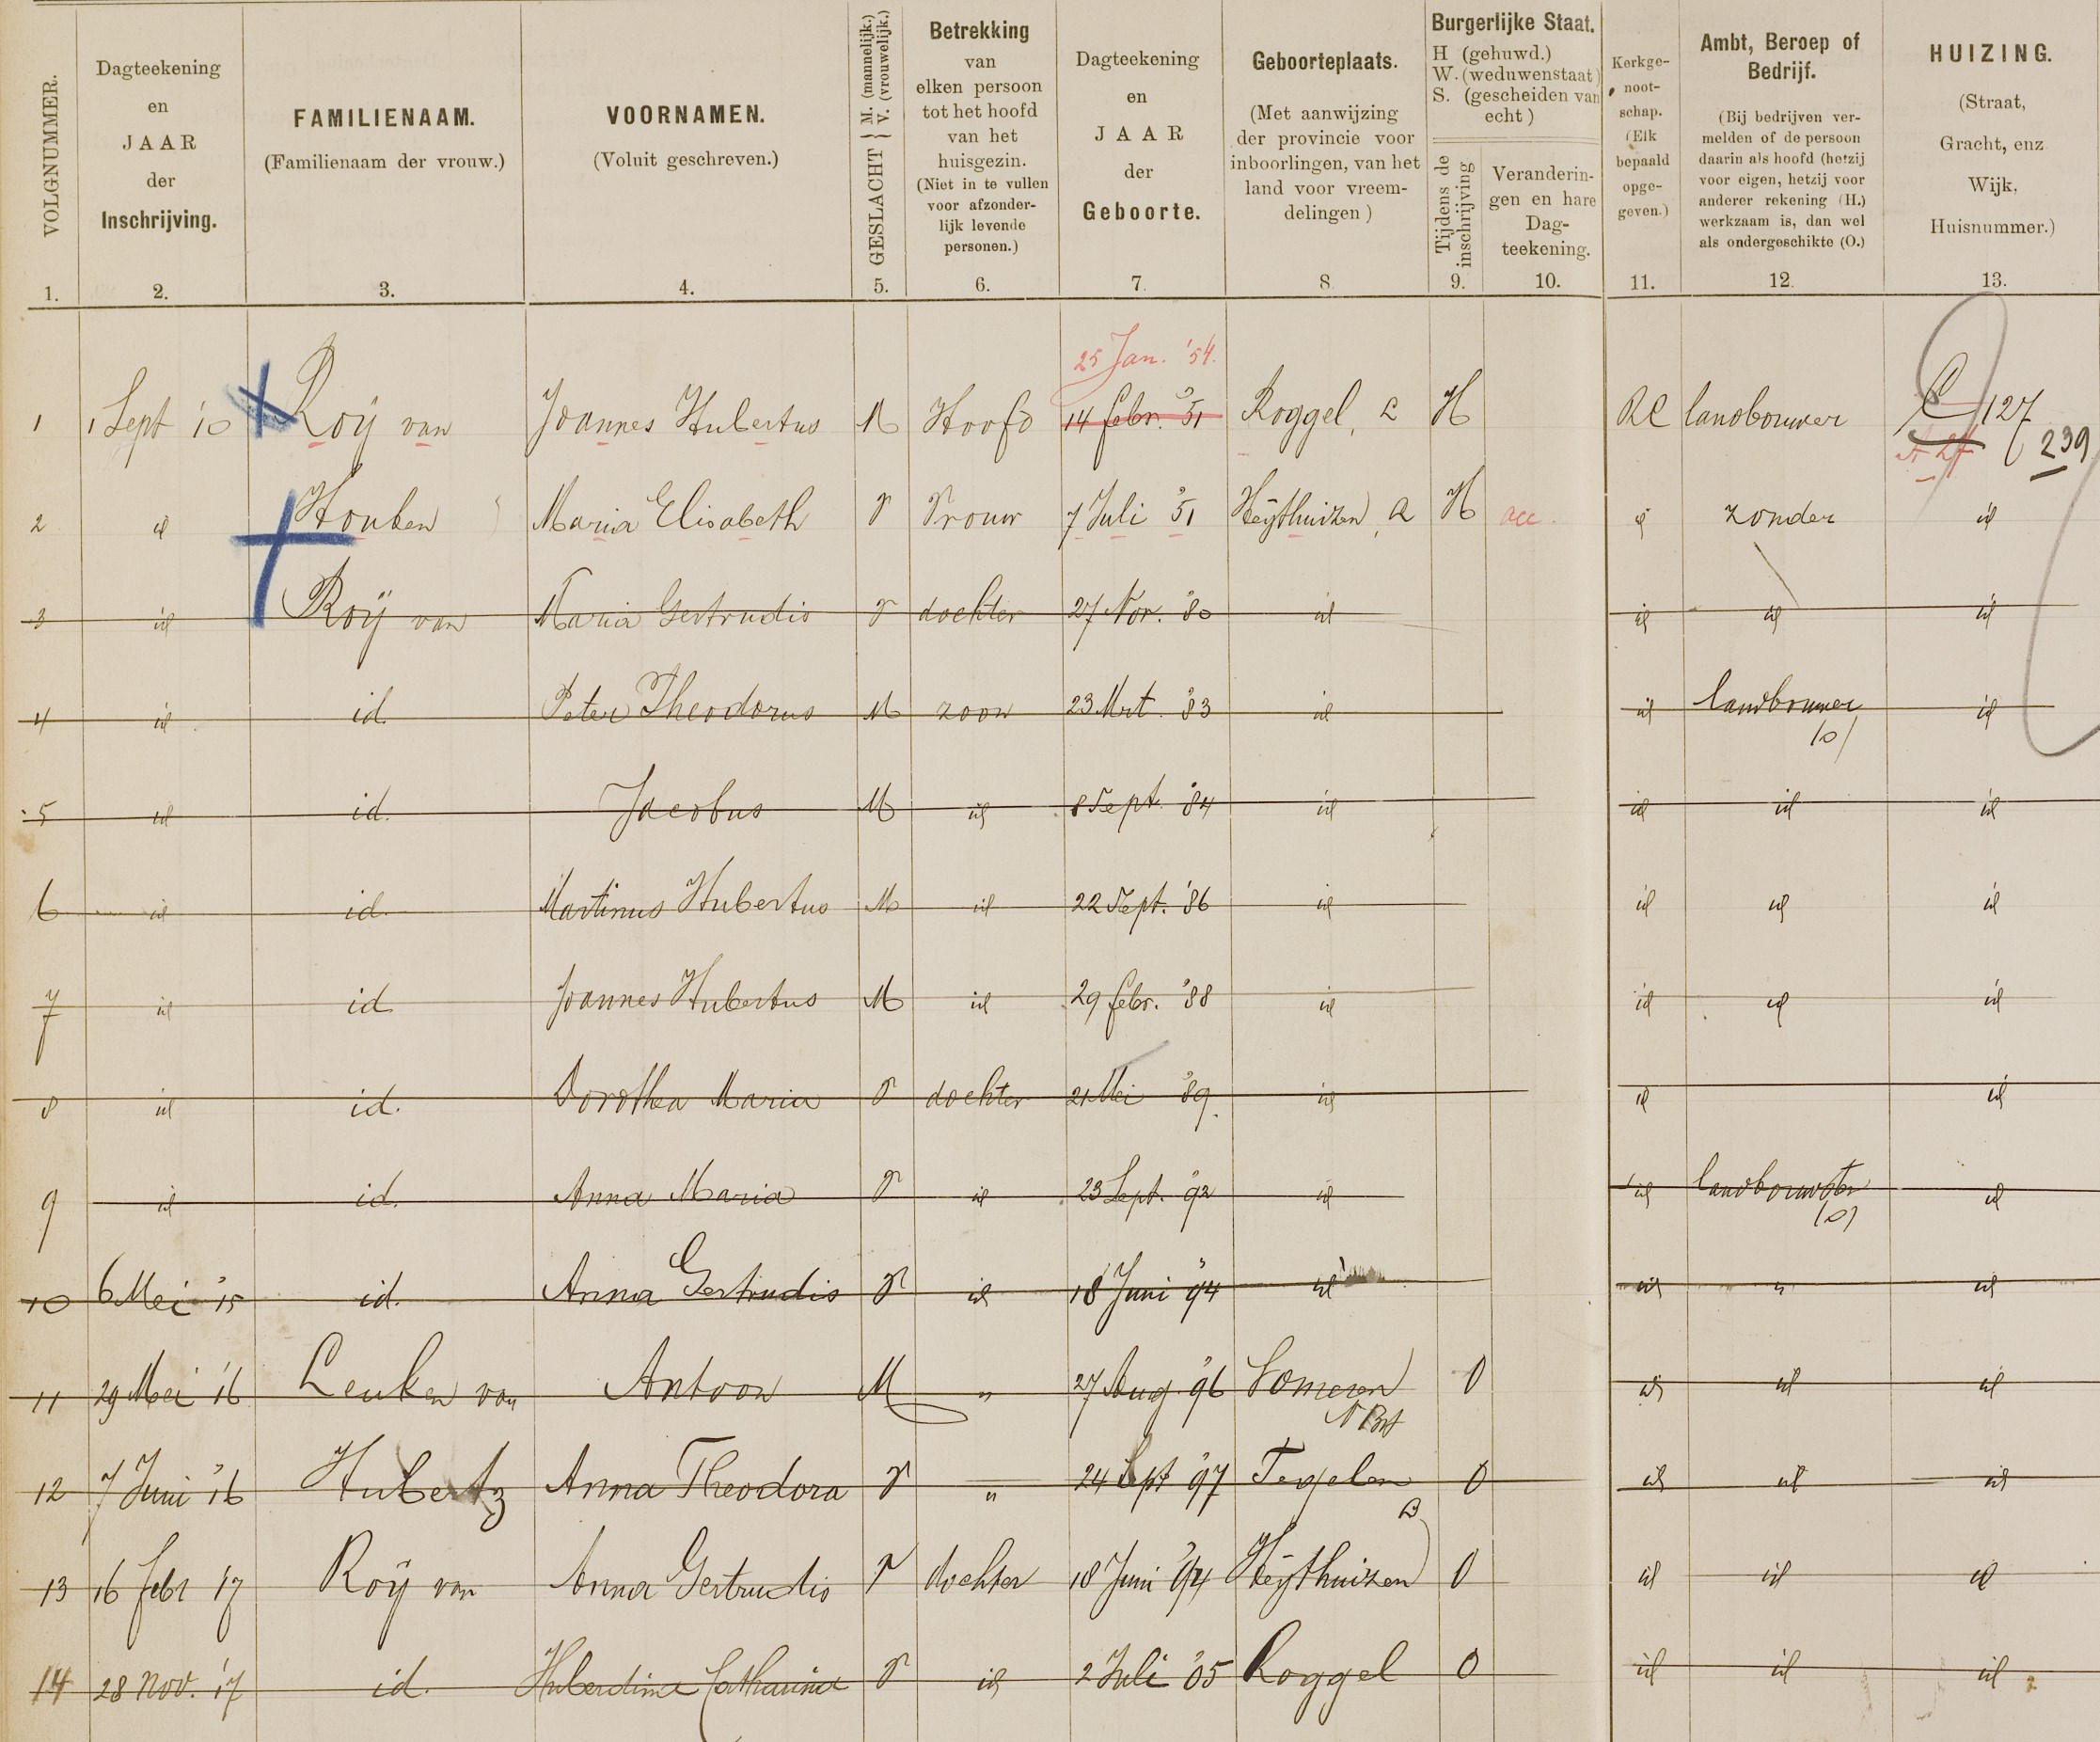 VOLGNUMMER.
1.
Dagteekening
en
JAAR
der
Inschrijving.
2.
FAMILIENAAM.
(Familienaam der vrouw.)
3.
VOORNAMEN.
(Voluit geschreven.)
4.
GESLACHT { M. (mannelijk.) V. (vrouwelijk.)
5.
Betrekking
van
elken persoon
tot het hoofd
van het
huisgezin.
(Niet in te vullen
voor afzonder-
lijk levende
personen.)
6.
Dagteekening
en
JAAR
der
Geboorte.
7.
Geboorteplaats.
(Met aanwijzing
der provincie voor
inboorlingen, van het
land voor vreem-
delingen)
8.
Burgerlijke Staat.
H (gehuwd.)
W. (weduwenstaat)
S. (gescheiden van
echt)
Tijdens de
inschrijving
9.
Veranderin-
gen en hare
Dag-
teekening.
10.
Kerkge-
noot-
schap.
(Elk
bepaald
opge-
geven.)
11.
Ambt, Beroep of
Bedrijf.
(Bij bedrijven ver-
melden of de persoon
daarin als hoofd (hetzij
voor eigen, hetzij voor
anderer rekening (H.)
werkzaam is, dan wel
als ondergeschikte (O.)
12.
HUIZING.
(Straat,
Gracht, enz
Wijk,
Huisnummer.)
13.
25 Jan. '54.
1 1 Sept '10 Roÿ van Joannes Hubertus M Hoofd 14 febr. '51 Roggel, L H RC landbouwer C 127
239
2 id Houben Maria Elisabeth V Vrouw 7 Juli '51 Heÿthuizen, L H acc. id zonder id
3 id Roÿ van Maria Gertrudis V dochter 27 Nov. '80 id id id id
4 id id. Peter Theodorus M zoon 23 Mrt. '83 id id landbouwer id
(o)
5 id id. Jacobus M id 8 Sept. '84 id id id id
6 id id. Martinus Hubertus M id 22 Sept. '86 id id id id
7 id id Joannes Hubertus M id 29 febr. '88 id id id id
8 id id. Dorothea Maria V dochter 21 Mei '89. id id id
9 id id. Anna Maria V id 23 Sept. '92 id id landbouwster id
(o)
10 6 Mei '15 id. Anna Gertrudis V id 18 Juni '94 id id " id
11 29 Mei '16 Leuken van Antoon M " 27 Aug. '96 Someren O id id id
N Brt
12 7 Juni '16 Hubertz Anna Theodora V " 24 Sept '97 Tegelen O id id id
13 16 febr 17 Roÿ van Anna Gertrudis V dochter 18 Juni '94 Heÿthuizen O id id id
14 28 nov. '17 id. Huberdina Catharina V id 2 Juli '05 Roggel O id id id